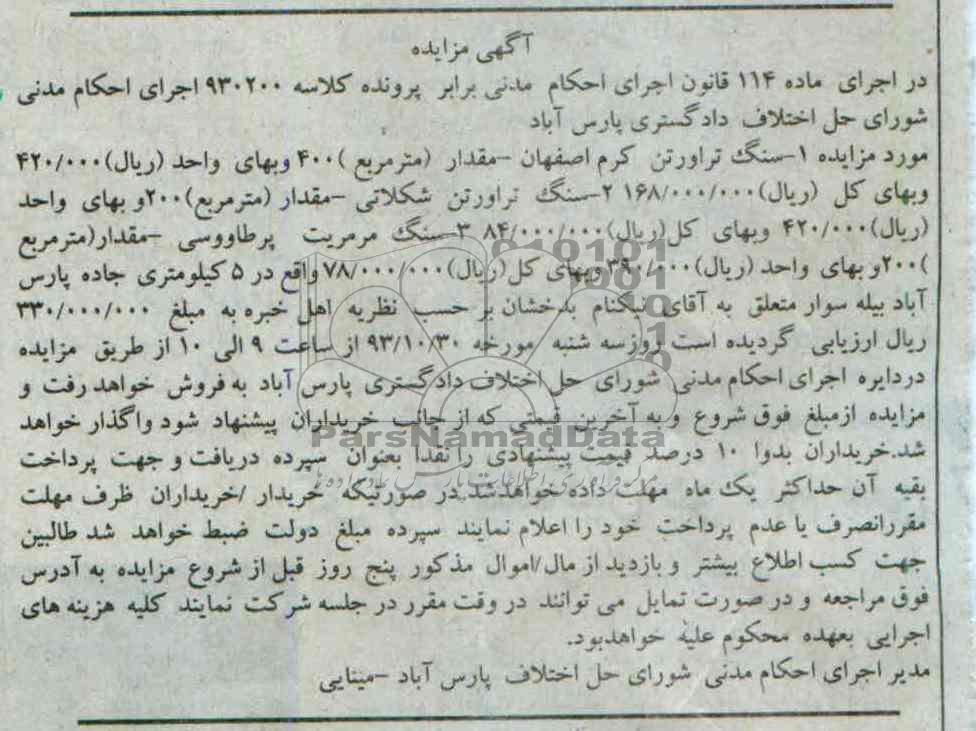 آگهی مزایده
در اجرای ماده ۱۱۴ قانون اجرای احکام مدنی برابر پرونده کلاسه ۹۳۰۲۰۰ اجرای احکام مدنی
شورای حل اختلاف دادگستری پارس آباد
مورد مزایده ۱-سنگ تراورتن کرم اصفهان -مقدار (مترمربع )۴۰۰ وبهای واحد (ریال)۴۲۰/۰۰۰
وبهای کل (ریال)۱۶۸/۰۰۰/۰۰۰ ۲-سنگ تراورتن شکلاتی -مقدار (مترمربع)۲۰۰و بهای واحد
(ریال)۴۲۰/۰۰۰ وبهای کل(ریال)۸۴/۰۰۰/۰۰۰ ۳-سنگ مرمریت پرطاووسی -مقدار(مترمربع
)۲۰۰و بهای واحد (ریال)۳۹۰/۰۰۰ وبهای کل(ریال)۷۸/۰۰۰/۰۰۰ واقع در ۵ کیلومتری جاده پارس
آباد بیله سوار متعلق به آقای نیکنام بدخشان بر حسب نظریه اهل خبره به مبلغ ۳۳۰/۰۰۰/۰۰۰
ریال ارزیابی گردیده است روزسه شنبه مورخه ۹۳/۱۰/۳۰ از ساعت ۹ الی ۱۰ از طریق مزایده
دردایره اجرای احکام مدنی شورای حل اختلاف دادگستری پارس آباد به فروش خواهد رفت و
مزایده ازمبلغ فوق شروع و به آخرین قیمتی که از جانب خریداران پیشنهاد شود واگذار خواهد
شد.خریداران بدوا ۱۰ درصد قیمت پیشنهادی را نقدا بعنوان سپرده دریافت و جهت پرداخت
بقیه آن حداکثر یک ماه مهلت داده خواهدشد.در صورتیکه خریدار /خریداران ظرف مهلت
مقررانصرف یا عدم پرداخت خود را اعلام نمایند سپرده مبلغ دولت ضبط خواهد شد طالبین
جهت کسب اطلاع بیشتر و بازدید از مال/اموال مذکور پنج روز قبل از شروع مزایده به آدرس
فوق مراجعه و در صورت تمایل می توانند در وقت مقرر در جلسه شرکت نمایند کلیه هزینه های
اجرایی بعهده محکوم علیه خواهدبود.
مدیر اجرای احکام مدنی شورای حل اختلاف پارس آباد -مینایی
ParsNamadData